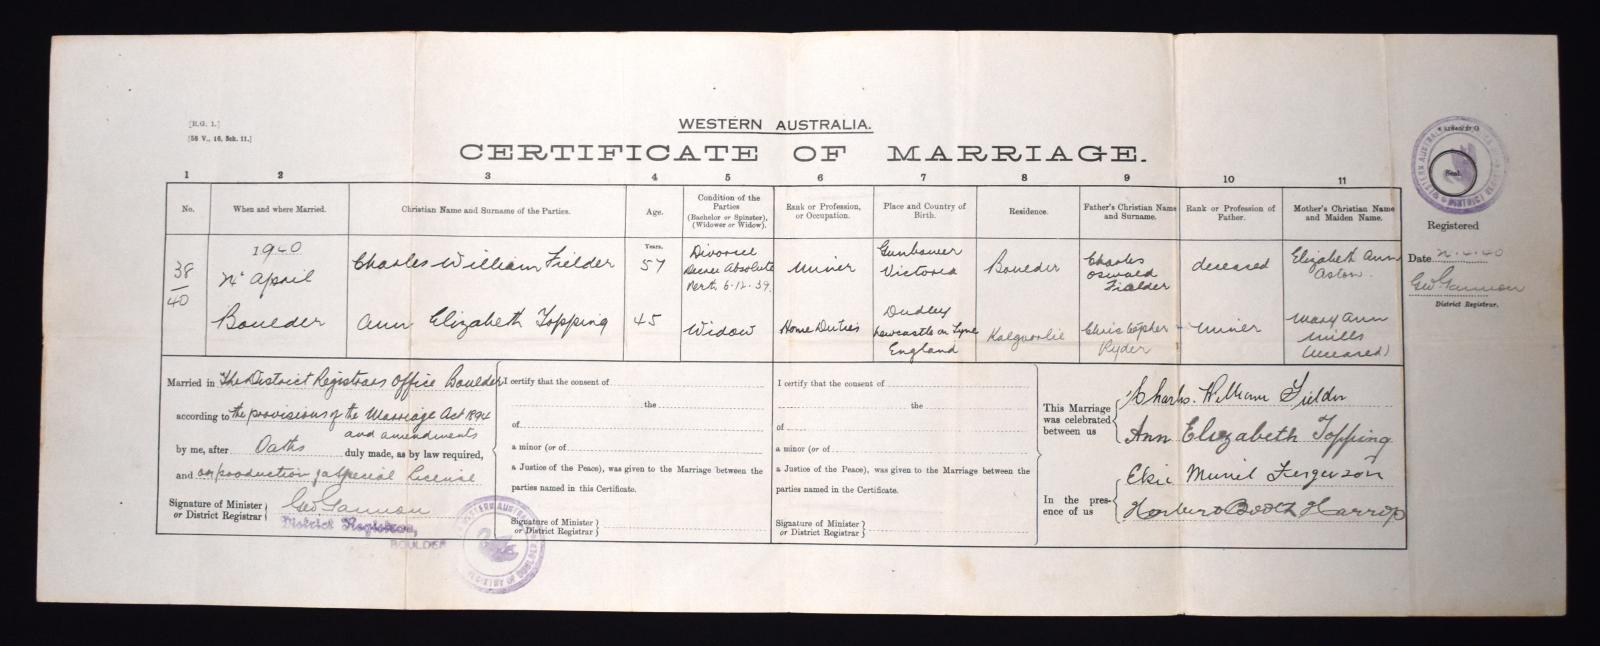 [R.G. 1.]
[58 V., 16, Sch. 11.]
WESTERN AUSTRALIA.
CERTIFICATE OF MARRIAGE.
1 2 3 4 5 6 7 8 9 10 11
No.
When and where Married.
Christian Name and Surname of the Parties.
Age.
Condition of the Parties
(Bachelor or Spinster),
(Widower or Widow).
Rank or Profession,
or Occupation.
Place and Country of
Birth.
Residence.
Father's Christian Name
and Surname.
Rank or Profession of
Father.
Mother's Christian Name
and Maiden Name.
38
40
1940
April
Boulder
Charles William Fielder
Years.
57
Divorced
Decree Absolute
Perth 6.12.39.
Miner
Gunbower
Victoria
Boulder
Charles
Oswald
Fielder
deceased
Elizabeth Ann
Aston
Ann Elizabeth Topping
45
Widow
Home Duties
Dudley
Newcastle on Tyne
England
Kalgoorlie
Christopher
Ryder
Miner
Mary Ann
Mills
(deceased)
Married in The District Registrars Office Boulder
according to the provisions of the Marriage Act 1894
and amendments
by me, after Oaths duly made, as by law required,
and on production of a Special License
Signature of Minister
or District Registrar
Geo Gannon
District Registrar,
BOULDER
WESTERN AUSTRALIA
REGISTRY OF BOULDER
I certify that the consent of
the
of
a minor (or of
a Justice of the Peace), was given to the Marriage between the
parties named in this Certificate.
Signature of Minister
or District Registrar
I certify that the consent of
the
of
a minor (or of
a Justice of the Peace), was given to the Marriage between the
parties named in the Certificate.
Signature of Minister
or District Registrar
This Marriage
was celebrated
between us
Charles William Fielder
Ann Elizabeth Topping
In the pres-
ence of us
Elsie Muriel Ferguson
Herbert Booth Harrop
Seal.
Registered
Date 4.40
Geo Gannon
District Registrar.